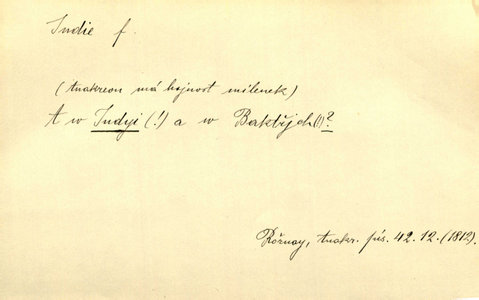 Indie f.
(Anakreon má hojnost milenek)
A w Indyi (!) a w Baktřjch(!)?
Rožnay, Anakr. pís. 42.12. (1812).